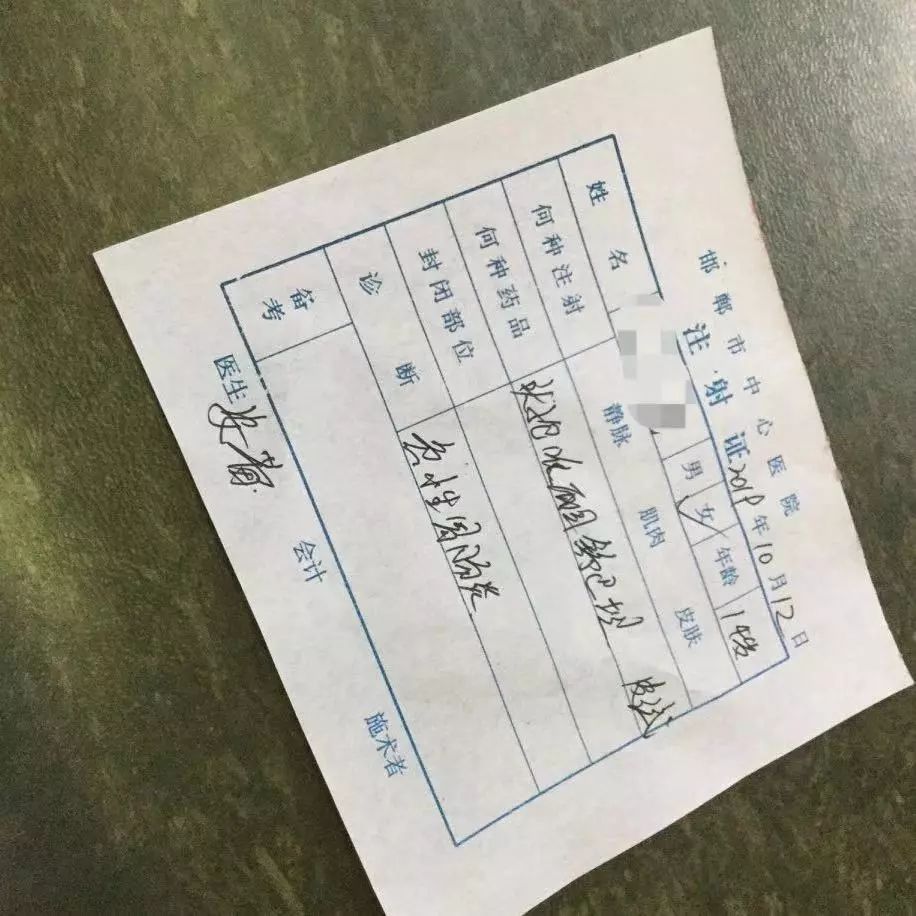 邯郸市中心医院
注射证 2019年10月12日
姓名 男 女 年龄 14岁
何种注射 静脉 肌肉 皮肤
何种药品 皮试
封闭部位
诊断 急性胃肠炎
备考
医生 会计 施术者